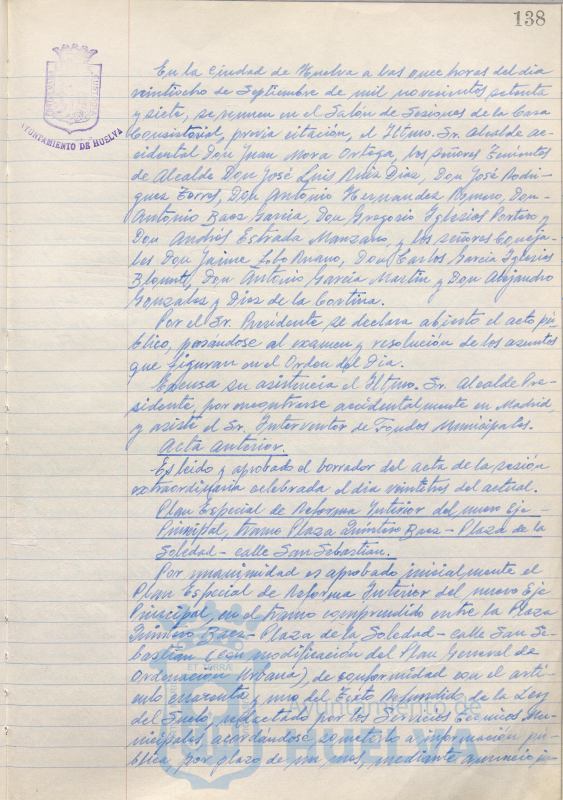 138
AYUNTAMIENTO DE HUELVA
En la Ciudad de Huelva a las once horas del dia
veintiocho de Septiembre de mil novecientos setenta
y siete, se reunen en el Salón de Sesiones de la Casa
Consistorial, previa citación, el Iltmo. Sr. Alcalde ac-
cidental Don Juan Mora Ortega, los señores Tenientes
de Alcalde Don José Luis Ruiz Diaz, Don José Rodri-
guez Torres, Don Antonio Hernandez Romero, Don
Antonio Baez Garcia, Don Gregorio Iglesias Portero y
Don Andrés Estrada Manzano, y los señores Conceja-
les Don Jaime Lobo Ruano, Don Carlos Garcia Iglesias
Don Antonio Garcia Martin y Don Alejandro
Gonzalez y Diez de la Cortina.
Por el Sr. Presidente se declara abierto el acto pú-
blico, pasandose al examen y resolución de los asuntos
que figuran en el Orden del Dia.
Excusa su asistencia el Iltmo. Sr. Alcalde Pre-
sidente, por encontrarse accidentalmente en Madrid,
y asiste el Sr. Interventor de Fondos Municipales.
Acta anterior.
Es leido y aprobado el borrador del acta de la sesión
extraordinaria celebrada el dia veintitres del actual.
Plan Especial de Reforma Interior del nuevo Eje
Principal, tramo Plaza Quintero Baez - Plaza de la
Soledad - calle San Sebastian.
Por unanimidad es aprobado inicialmente el
Plan Especial de Reforma Interior del nuevo Eje
Principal, en el tramo comprendido entre la Plaza
Quintero Baez - Plaza de la Soledad - calle San Se-
bastian (con modificación del Plan General de
Ordenación Urbana), de conformidad con el arti-
culo cuarenta y uno del Texto Refundido de la Ley
del Suelo, redactado por los Servicios Técnicos Mu-
nicipales, acordándose someterlo a información pú-
blica, por plazo de un mes, mediante anuncio in-
Ayuntamiento de
HUELVA